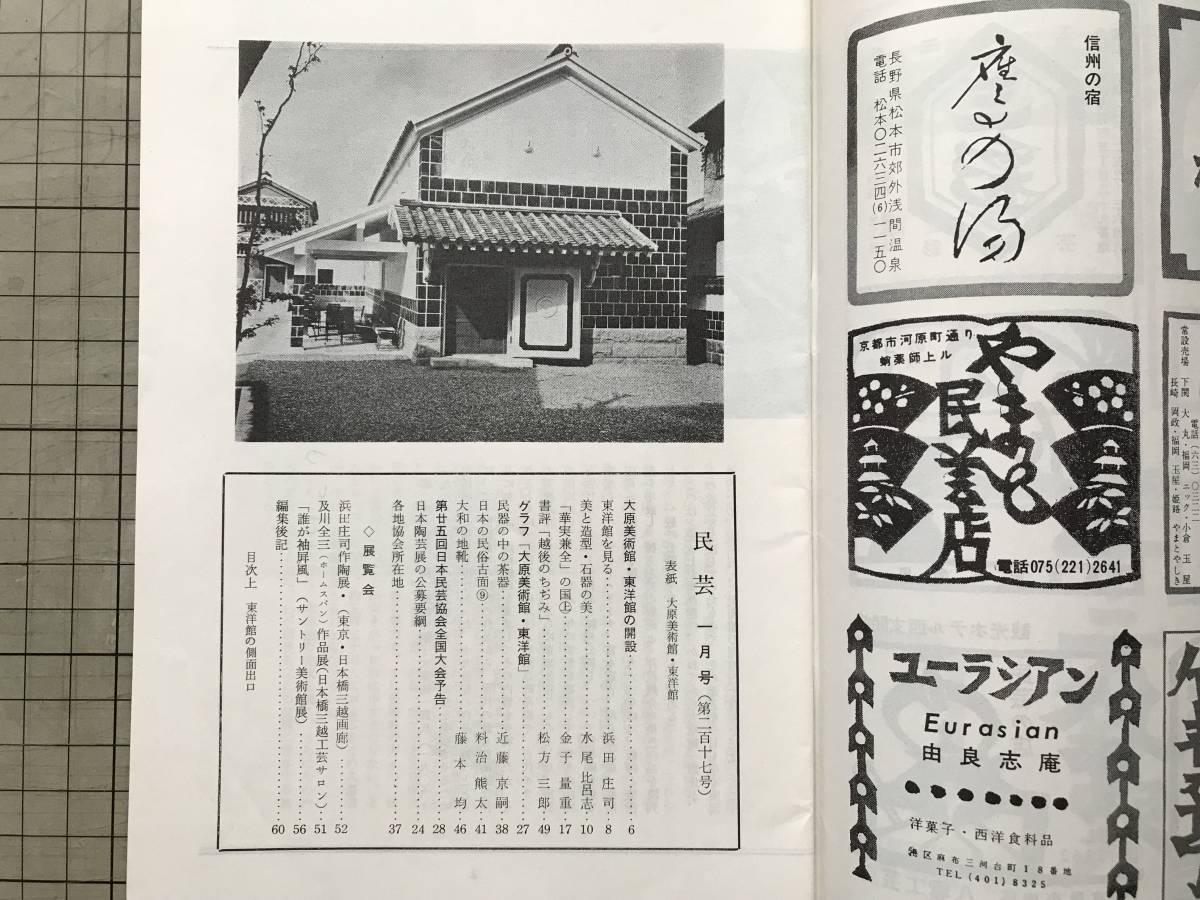 民芸 一月号（第二百十七号）
表紙 大原美術館・東洋館
大原美術館・東洋館の開設 6
東洋館を見る 浜田庄司 8
美と造型・石器の美 水尾比呂志 10
「華実兼全」の国㊤ 金子量重 17
書評「越後のちぢみ」 松方三郎 49
グラフ「大原美術館・東洋館」 27
民器の中の茶器 近藤京嗣 38
日本の民俗古面⑨ 料治熊太 41
大和の地靴 藤本均 46
第廿五回日本民芸協会全国大会予告 28
日本陶芸展の公募要綱 24
各地協会所在地 37
◇展覧会
浜田庄司作陶展・（東京・日本橋三越画廊） 52
及川全三（ホームスパン）作品展（日本橋三越工芸サロン） 51
「誰が袖屏風」（サントリー美術館展） 56
編集後記 60
目次上 東洋館の側面出口
信州の宿
長野県松本市郊外浅間温泉
電話 松本〇二六三四(6)一一五〇
京都市河原町通り
蛸薬師上ル
やまと
民芸店
電話075(221)2641
常設売場 下関 大丸・福岡 ニック・小倉 玉屋
長崎 岡政・福岡 玉屋・姫路 やまとやしき
ユーラシアン
Eurasian
由良志庵
洋菓子・西洋食料品
港区麻布三河台町18番地
TEL (401) 8325